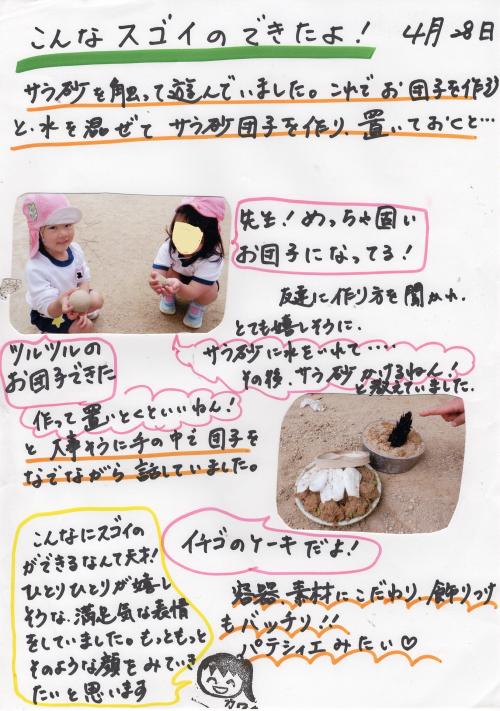 こんなスゴイのできたよ! 4月28日
サラ砂を触って遊んでいました。これでお団子を作ろう
と、水を混ぜてサラ砂団子を作り、置いておくと…
先生!めっちゃ固い
お団子になってる!
友達に作り方を聞かれ、
とても嬉しそうに、
サラ砂に水をいれて・・・・
その後、サラ砂かけるねん!
と教えていました。
ツルツルの
お団子できた
作って置いとくといいねん!
と大事そうに手の中で団子を
なでながら話していました。
イチゴのケーキだよ!
容器、素材にこだわり、飾りつけ
もバッチリ!!
パテシィエみたい♡
こんなにスゴイの
ができるなんて天才!
ひとりひとりが嬉し
そうな、満足気な表情
をしていました。もっともっと
そのような顔をみていき
たいと思います